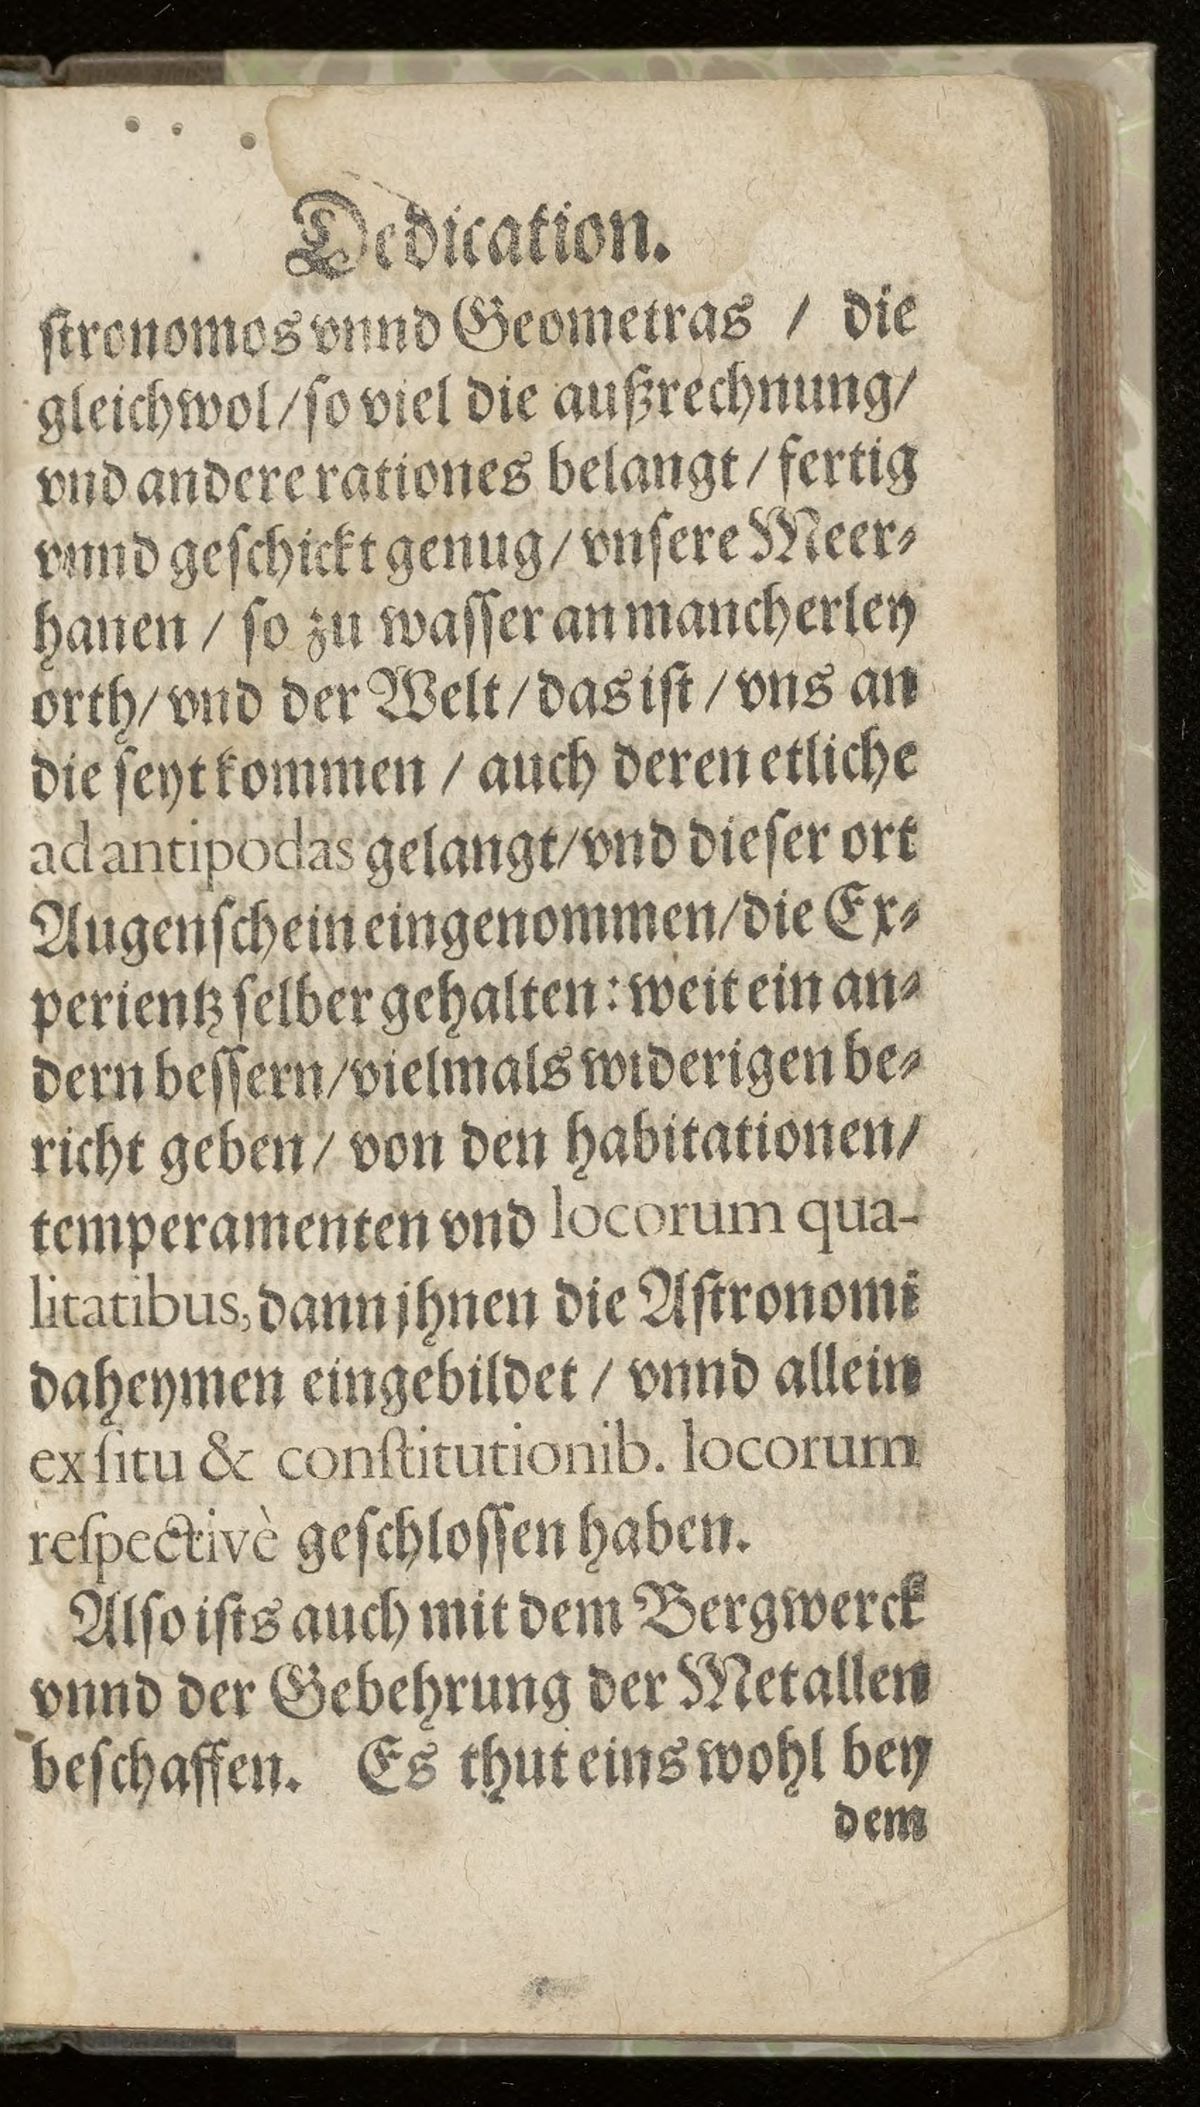 Dedication.
ſtronomos vnnd Geometras / die
gleichwol / ſo viel die außrechnung /
vnd andere rationes belangt / fertig
vnnd geſchickt genug / vnſere Meer⸗
hanen / ſo zu waſſer an mancherley
orth / vnd der Welt / das iſt / vns an
die ſeyt kommen / auch deren etliche
ad antipodas gelangt / vnd dieſer ort
Augenſchein eingenommen / die Ex⸗
perientz ſelber gehalten: weit ein an⸗
dern beſſern / vielmals widerigen be⸗
richt geben / von den habitationen /
temperamenten vnd locorum qua-
litatibus, dann jhnen die Aſtronomi
daheymen eingebildet / vnnd allein
ex ſitu & conſtitutionib. locorum
reſpectivè geſchloſſen haben.
Alſo iſts auch mit dem Bergwerck
vnnd der Gebehrung der Metallen
beſchaffen. Es thut eins wohl bey
dem